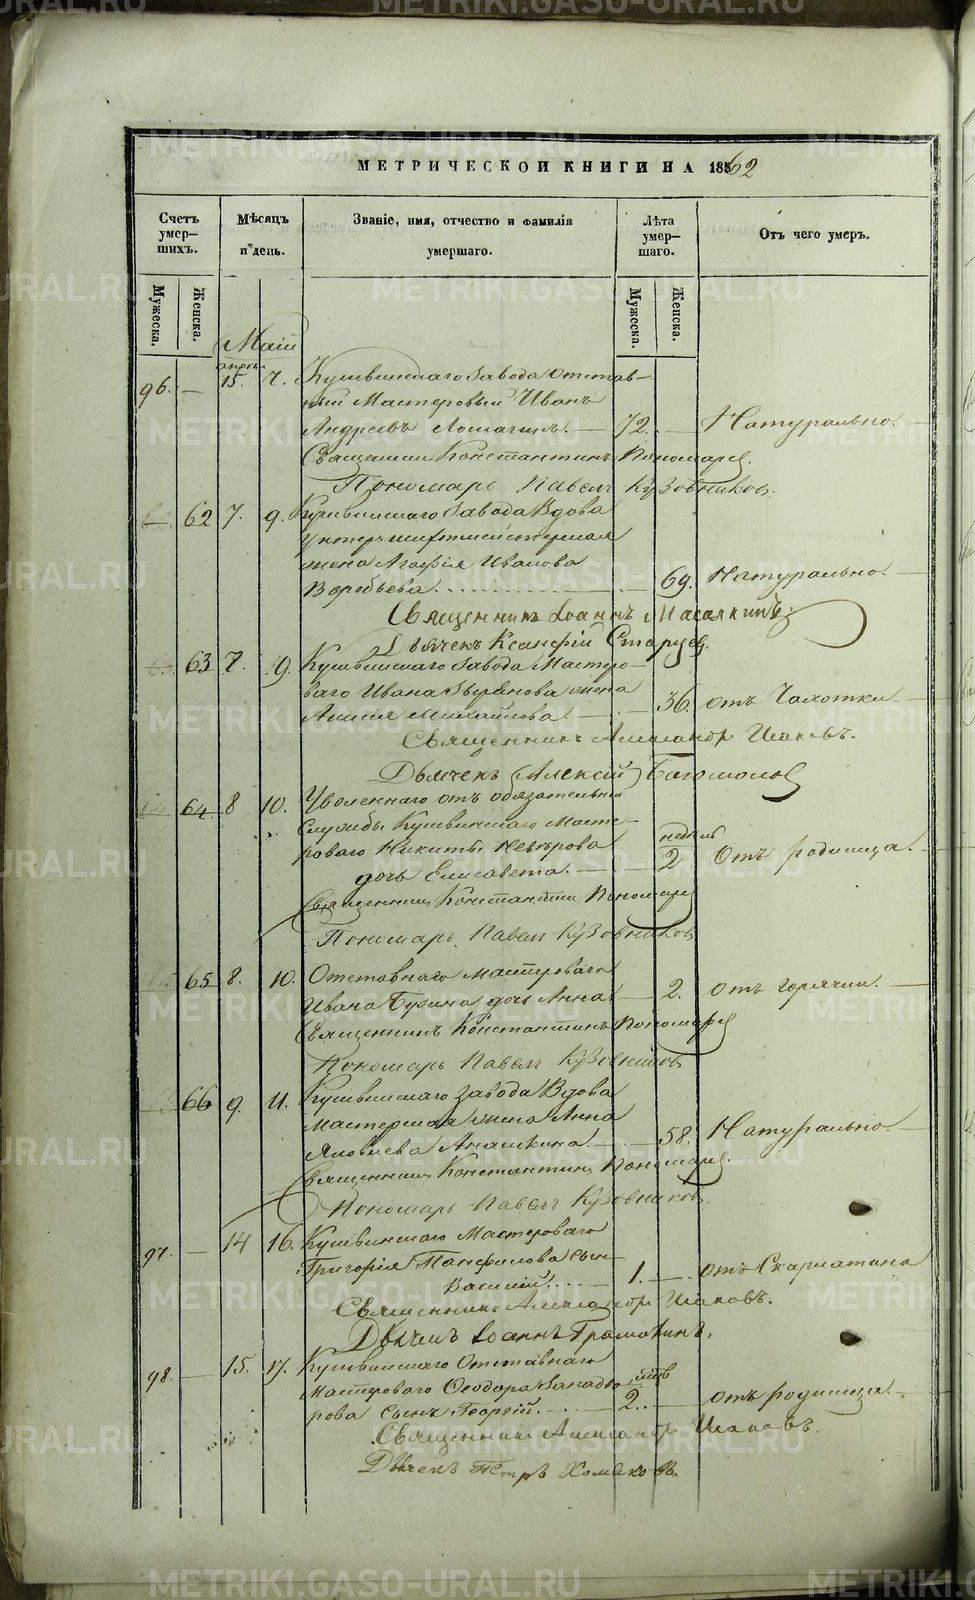 МЕТРИЧЕСКОЙ КНИГИ НА 1862
Счетъ умер-шихъ.
Мѣсяцъ и день.
Званіе, имя, отчество и фамилія умершаго.
Лѣта умер-шаго.
Отъ чего умеръ.
Мужеска.
Женска.
Мужеска.
Женска.
Маій
апрѣ.
96. — 15. 7. Кушвинскаго Завода Отстав-
ный Мастеровый Иванъ
Андреевъ — 72. — Натурально. —
Священникъ Константинъ Пономарев.
Пономарь Павелъ Кузовников.
62 7. 9. Кушвинскаго Завода Вдова
Унтершихтмейстерская
жена Агафія Иванова
Воробьева — 69. Натурально. —
Священникъ Іоаннъ
Дьячекъ Ксанфій Старцев.
63 7. 9. Кушвинскаго Завода Мастеро-
ваго Ивана Зырянова жена
Михайлова. — 36. отъ Чахотки —
Священникъ Александр Ишаковъ.
Дьячекъ Алексій Богомолов
64 8 10. Уволеннаго отъ обязательной
Службы Кушвинскаго Масте-
роваго Никиты
дочь Елисавета. — недѣль 2 Отъ родимца. —
Священникъ Константин Пономарев
Пономарь Павел Кузовников
65 8. 10. Отставнаго Мастероваго
Ивана дочь Анна — 2. отъ горячки. —
Священникъ Константинъ Пономарев
Пономарь Павел Кузовников
66 9. 11. Кушвинскаго завода Вдова
Мастерская жена Анна
Яковлева — 58. Натурально. —
Священникъ Константин Пономарев.
Пономарь Павелъ Кузовников.
97. — 14 16. Кушвинскаго Мастероваго
Григорія Панфилова сын
Василій. — 1. — отъ Скарлатина
Священникъ Александр Ишаковъ.
Дьячекъ Іоаннъ Грамотинъ.
98. — 15. 17. Кушвинскаго Отставнаго
Мастероваго Ѳеодора
рова сынъ Георгій. — 2. — отъ родимца. —
Священникъ Александр Ишаковъ.
Дьячекъ Петръ Хомяковъ.
METRIKI.GASO-URAL.RU